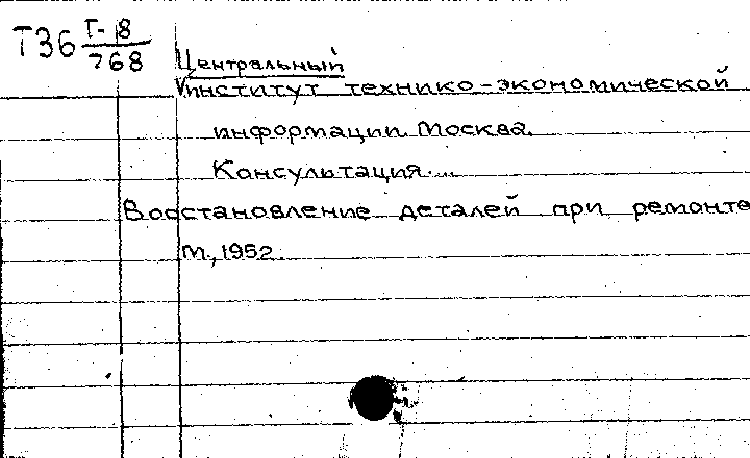 Т36 Т-18
768
Центральный
институт технико-экономической
информации. Москва.
Консультация....
Восстановление деталей при ремонте
М., 1952.